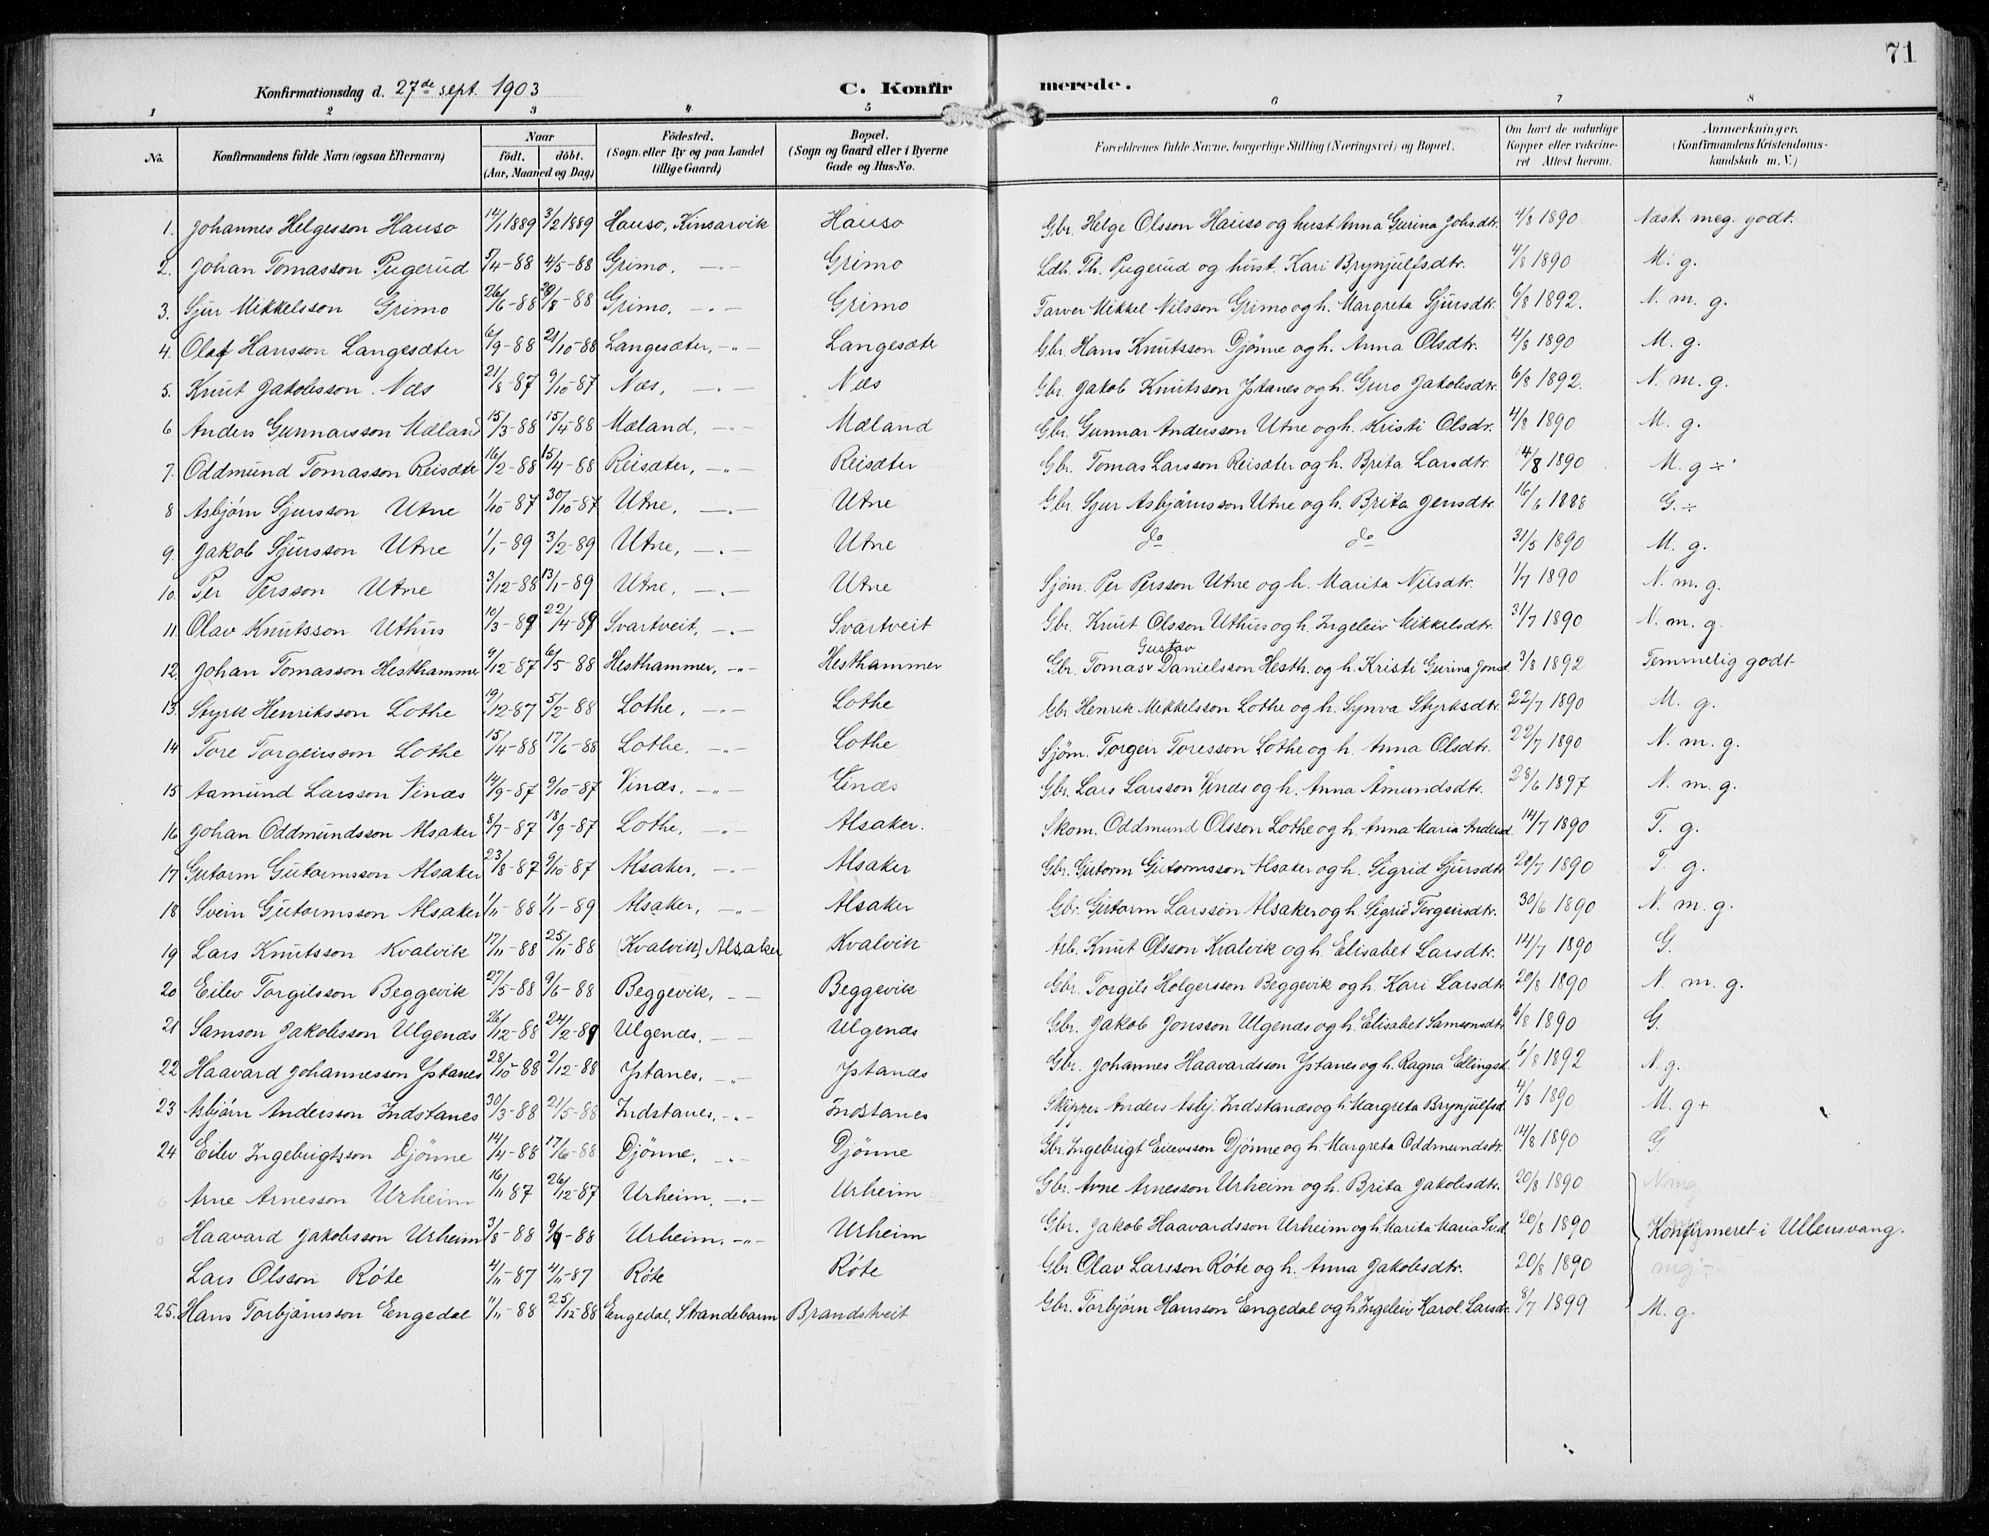 71
Konfirmationsdag d. 27de sept. 1903 C. Konfirmerede.
1 2 3 4 5 6 7 8
No. Konfirmandens fulde Navn (ogsaa Efternavn) Naar födt. döbt. (Aar, Maaned og Dag) Födested. (Sogn eller By og paa Landet tillige Gaard) Bopæl. (Sogn og Gaard eller i Byerne Gade og Hus-No. Foreldrenes fulde Navne, borgerlige Stilling (Næringsvei) og Bopæl. Om havt de naturlige Kopper eller vakcineret Attest herom. Anmærkninger. (Konfirmandens Kristendomskundskab m. V.)
1. Johannes Helgesson Hauso 14/1 1889 3/2 1889 Hauso, Kinsarvik Hauso Gbr. Helge Olsson Hauso og hust Anna Gurina Johsdtr. 4/8 1890 Næst. meg. godt.
2. Johan Tomasson Pugerud 5/4-88 4/5-88 Grimo, -"- Grimo Ldh. Th. Pugerud og hust. Kari Brynjulfsdtr. 4/8 1890 M. g.
3. Sjur Mikkelsson Grimo 26/6-88 28/8-88 Grimo, -"- Grimo Farver Mikkel Nilsson Grimo og h. Margreta Sjursdtr. 6/8 1892. N. m. g.
4. Olaf Hansson Langesæter 6/9-88 21/10-88 Langesæter, -"- Langesætr Gbr. Hans Knutsson Djönne og h. Anna Olsdtr. 4/8 1890 M. g.
5. Knut Jakobsson Næs 21/8-87 9/10-87 Næs, -"- Næs Gbr. Jakob Knutsson Ystanes og h. Guro Jakobsdtr. 6/8 1892. N. m. g.
6 Anders Gunnarsson Mæland 15/3-88 15/4-88 Mæland, -"- Mæland Gbr. Gunnar Andersson Utne og h. Kristi Olsdtr. 4/8 1890 M. g.
7. Oddmund Tomasson Reisæter 16/2-88 15/4-88 Reisæter, -"- Reisæter Gbr. Tomas Larsson Reisæter og h. Brita Larsdtr. 4/8 1890 M. g ÷
8 Asbjørn Sjursson Utne 1/10-87 30/10-87 Utne, -"- Utne Gbr. Sjur Asbjørnsson Utne og h. Brita Jensdtr. 16/6 1888 G. ÷
9. Jakob Sjursson Utne 1/1-89 3/2-89 Utne, -"- Utne do do 31/5 1890 M. g.
10. Per Persson Utne 3/12-88 13/1-89 Utne, -"- Utne Sjöm. Per Persson Utne og h. Marita Nilsdtr. 1/7 1890 N. m. g.
11. Olav Knutsson Uthus 10/3-89 22/4-89 Svartveit, -"- Svartveit Gbr. Knut Olsson Uthus og h. Ingeleiv Mikkelsdtr. 31/7 1890 N. m. g.
12. Johan Tomasson Hesthammer 9/12-87 6/5-88 Hesthammer, -"- Hesthammer Gbr. Tomas Gustav Danielsson Hesth. og h. Kristi Gurina Jonsd. 3/8 1892 Temmelig godt
13. Styrk Henriksson Lothe 19/12-87 5/2-88 Lothe, -"- Lothe Gbr Henrik Mikkelsson Lothe og h. Synva Styrksdtr. 22/7 1890 M. g.
14 Tore Torgeirsson Lothe 15/4-88 17/6-88 Lothe, -"- Lothe Sjöm. Torgeir Toresson Lothe og h. Anna Olsdtr. 22/7 1890 N. m. g.
15 Aamund Larsson Vinæs 14/9-87 9/10-87 Vinæs, -"- Vinæs Gbr. Lars Larsson Vinæs og h. Anna Åmundsdtr. 28/6 1897 N. m. g.
16 Johan Oddmundsson Alsaker 8/7-87 18/9-87 Lothe, -"- Alsaker. Skom. Oddmund Olsson Lothe og h. Anna Maria Andersd. 14/7 1890 T. g.
17 Gutorm Gutormsson Alsaker 23/8-87 9/10-87 Alsaker, -"- Alsaker Gbr. Gutorm Gutormsson Alsaker og h. Sigrid Sjursdtr 20/7 1890 T. g.
18 Svein Gutormsson Alsaker 1/11-88 1/1-89 Alsaker, -"- Alsaker Gbr. Gutorm Larsson Alsaker og h. Sigrid Torgeirsdtr. 30/6 1890 N. m. g.
19 Lars Knutsson Kvalvik 17/11-88 25/11-88 (Kvalvik) Alsaker Kvalvik Arb. Knut Olsson Kvalvik og h. Elisabet Larsdtr. 14/7 1890 G.
20 Eilev Torgilsson Beggevik 27/5-88 9/6-88 Beggevik, - - Beggevik Gbr. Torgils Holgersson Beggevik og h. Kari Larsdtr 20/8 1890 N. m. g.
21 Samson Jakobsson Ulgenæs 26/12-88 24/2-89 Ulgenæs, - - Ulgenæs Gbr. Jakob Jonsson Ulgenæs og h. Elisabet Samsonsdtr 6/8 1890 G.
22 Haavard Johannesson Ystanes 28/10-88 2/12-88 Ystanes, -"- Ystanæs Gbr. Johannes Haavardsson Ystanes og h. Ragna Ellingsd. 6/8 1892 N. g.
23 Asbjørn Andersson Indstanes 30/3-88 21/5-88 Indstanes, -"- Indstanes Skipper Anders Asbj. Indstanæs og h. Margreta Brynjulfsd. 4/8 1890 M. g +
24 Eilev Ingebrigtsson Djönne 14/4-88 17/6-88 Djönne, -"- Djönne Gbr. Ingebrigt Eilevsson Djönne og h. Margreta Oddmundsdtr. 14/8 1890 G
Arne Arnesson Urheim 16/11 87 26/12-87 Urheim, -"- Urheim Gbr. Arne Arnesson Urheim og h. Brita Jakobsdtr. 20/8 1890
Haavard Jakobsson Urheim 3/8-88 9/9-88 Urheim. -"- Urheim Gbr. Jakob Haavardsson Urheim og h. Marita Maria 20/8 1890 Konfirmeret i Ullensvang.
Lars Olsson Röte 4/11-87 4/11-87 Röte Röte Gbr Olav Larsson Röte og h. Anna Jakobsdtr. 20/8 1890
25. Hans Torbjørnsson Engedal 1/11-88 25/12-88 Engedal, Strandebarm Brandstveit Gbr. Torbjörn Hansson Engedal og h Ingeleiv Karol. Larsdr. 8/7 1899 M. g.